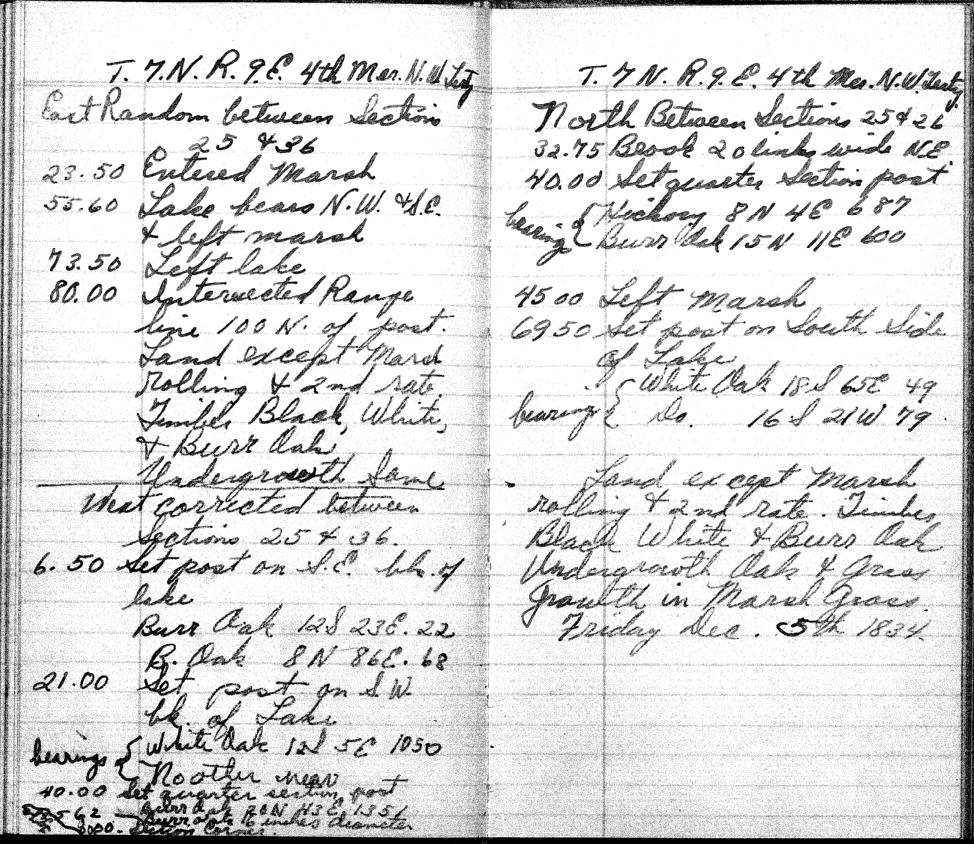 T. 7. N. R. 9. E. 4th Mer. N. W. Terty
East Random between Sections
25 & 36
23.50 Entered Marsh
55.60 Lake bears N.W. & S.E.
& left marsh
73.50 Left lake
80.00 Intersected Range
line 100 N. of post.
Land except Marsh
rolling & 2nd rate
Timber Black, White,
& Burr Oak
Undergrowth Same
West corrected between
Sections 25 & 36.
6.50 Set post on S.E. bk. of
lake
Burr Oak 12 S 23 E. 22
B. Oak 8 N 86 E. 68
21.00 Set post on S.W.
bk. of Lake
bearings { White Oak 12 S 5 E 1050
No other near
40.00 Set quarter section post
Burr Oak 20 N 43 E 1351
62 Burr oak 16 inches diameter
80.00 - Section Corner.
T. 7 N. R. 9 E. 4th Mer. N.W. Terty.
North Between Sections 25 & 26
32.75 Brook 20 links wide N.E.
40.00 Set quarter Section post
bearing { Hickory 8 N 4 E 687
Burr Oak 15 N 11 E 600
45 00 Left Marsh
69 50 Set post on South Side
of Lake
bearing { White Oak 18 S 65 E 49
Do. 16 S 21 W. 79
Land except Marsh
rolling & 2nd rate. Timber
Black White & Burr Oak
Undergrowth Oak & Grass
Growth in Marsh Grass.
Friday Dec. 5th 1834